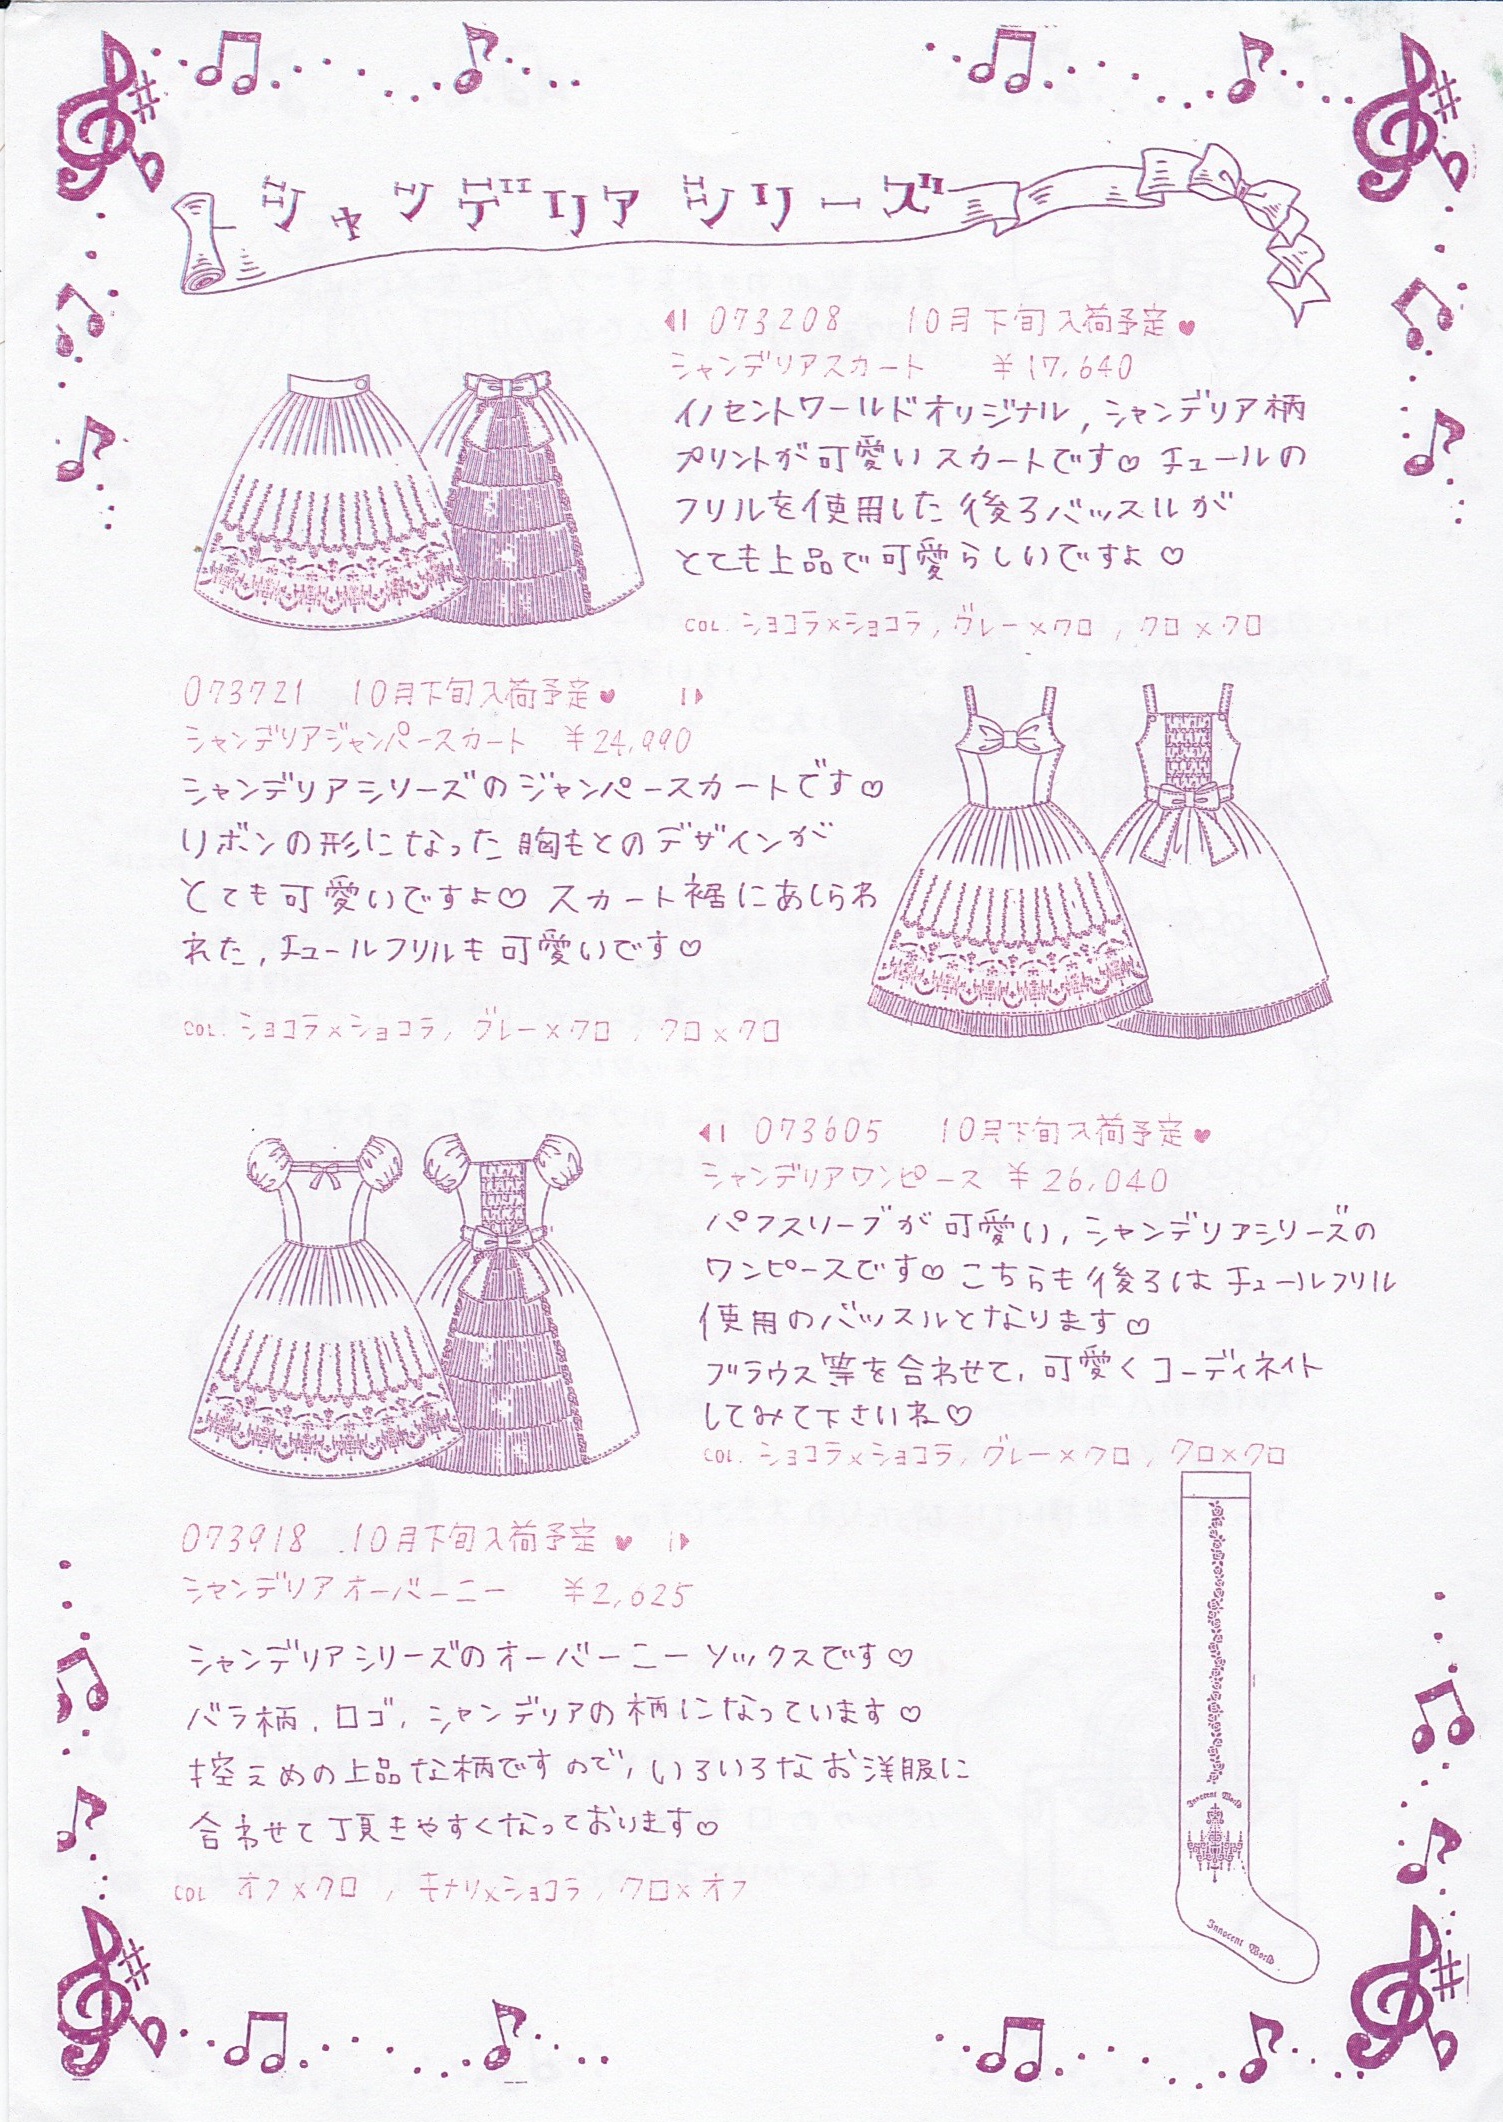 シャンデリアシリーズ
073208 10月下旬入荷予定♥
シャンデリアスカート ¥17,640
イノセントワールドオリジナル,シャンデリア柄
プリントが可愛いスカートです♡チュールの
フリルを使用した後ろバッスルが
とても上品で可愛らしいですよ♡
COL. ショコラ×ショコラ,グレー×クロ,クロ×クロ
073721 10月下旬入荷予定♥
シャンデリアジャンパースカート ¥24,990
シャンデリアシリーズのジャンパースカートです♡
リボンの形になった胸もとのデザインが
とても可愛いですよ♡スカート裾にあしらわ
れた,チュールフリルも可愛いです♡
COL. ショコラ×ショコラ,グレー×クロ,クロ×クロ
073605 10月下旬入荷予定♥
シャンデリアワンピース ¥26,040
パフスリーブが可愛い,シャンデリアシリーズの
ワンピースです♡こちらも後ろはチュールフリル
使用のバッスルとなります♡
ブラウス等を合わせて,可愛くコーディネイト
してみて下さいね♡
COL. ショコラ×ショコラ,グレー×クロ,クロ×クロ
073918 10月下旬入荷予定♥
シャンデリアオーバーニー ¥2,625
シャンデリアシリーズのオーバーニーソックスです♡
バラ柄,ロゴ,シャンデリアの柄になっています♡
控えめの上品な柄ですので,いろいろなお洋服に
合わせて頂きやすくなっております♡
COL オフ×クロ,キナリ×ショコラ,クロ×オフ
Innocent World
Innocent World